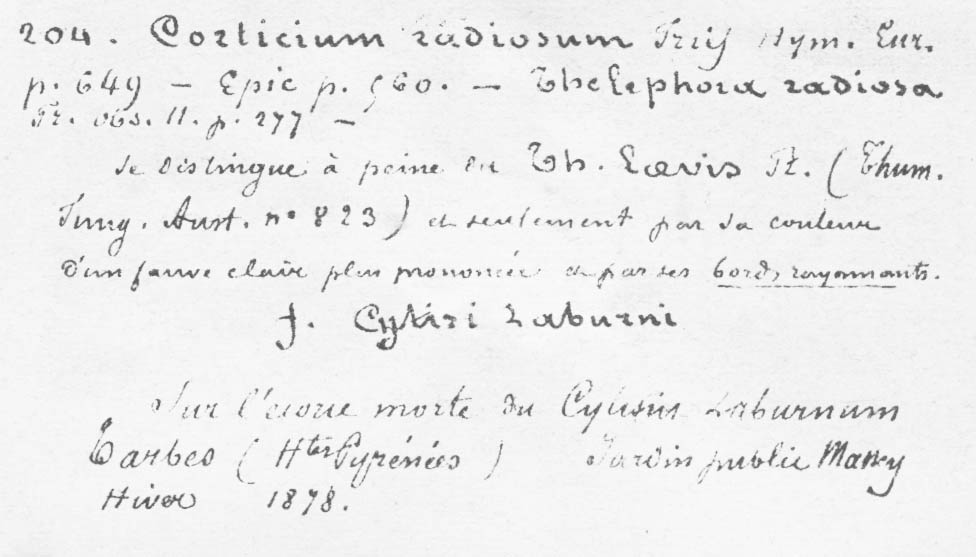 204. Corticium radiosum Fries Hym. Eur.
p. 649 — Epic p. 560. — Thelephora radiosa
Fr. obs. II. p. 277 —
Se distingue à peine du Th. Laevis Fr. (Thum.
Fung. Aust. n° 823) et seulement par sa couleur
d'un fauve clair plus prononcée et par ses bords rayonnants.
f. Cytisi Laburni
Sur l'écorce morte du Cytisus Laburnum
Tarbes (Htes Pyrénées) Jardin public Massey
Hiver 1878.